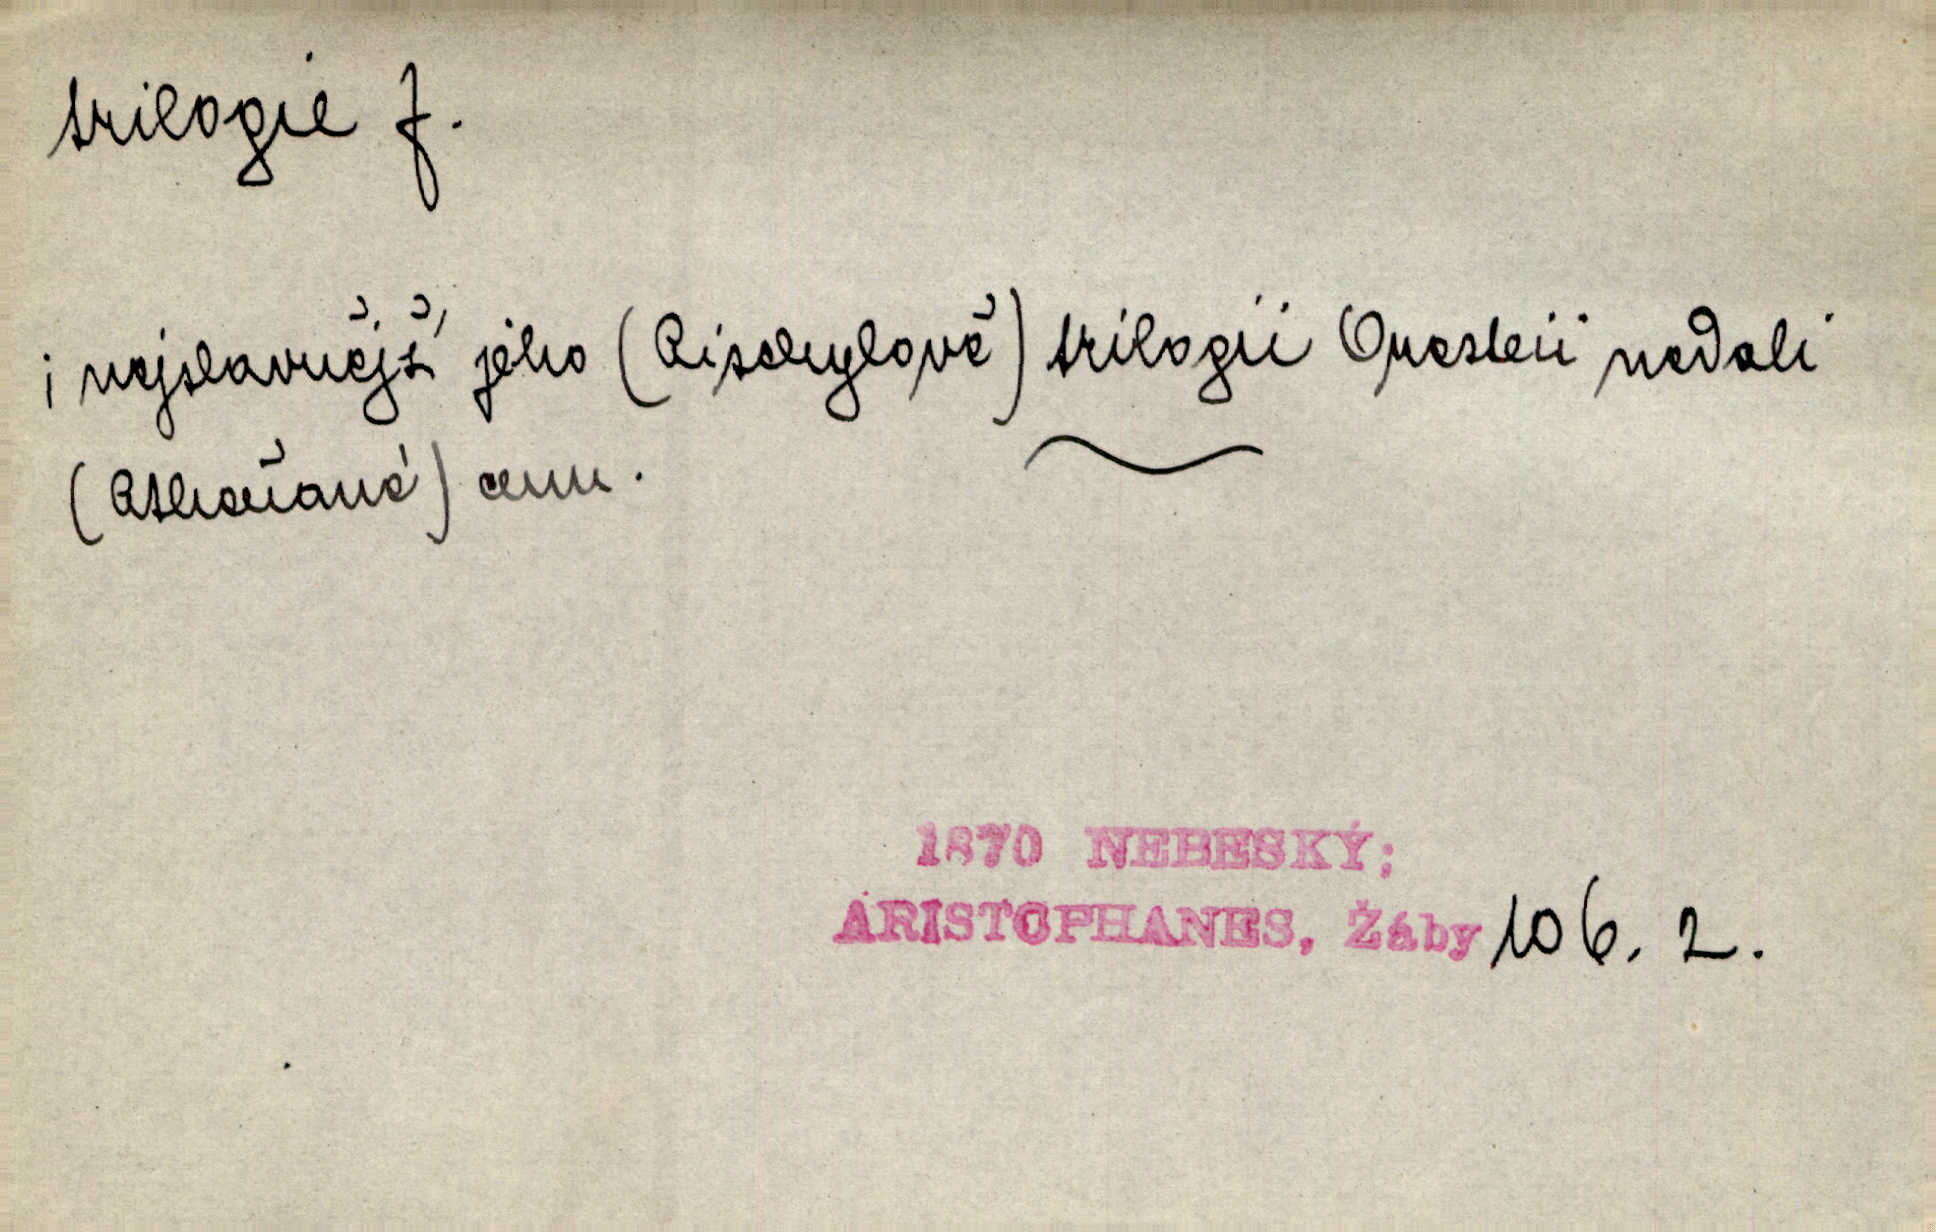 trilogie f.
i nejslavnější jeho (Aischylově) trilogii Oresteii nedali
(Atheňané) cenu.
1870 NEBESKÝ;
ARISTOPHANES, Žáby 106. 2.